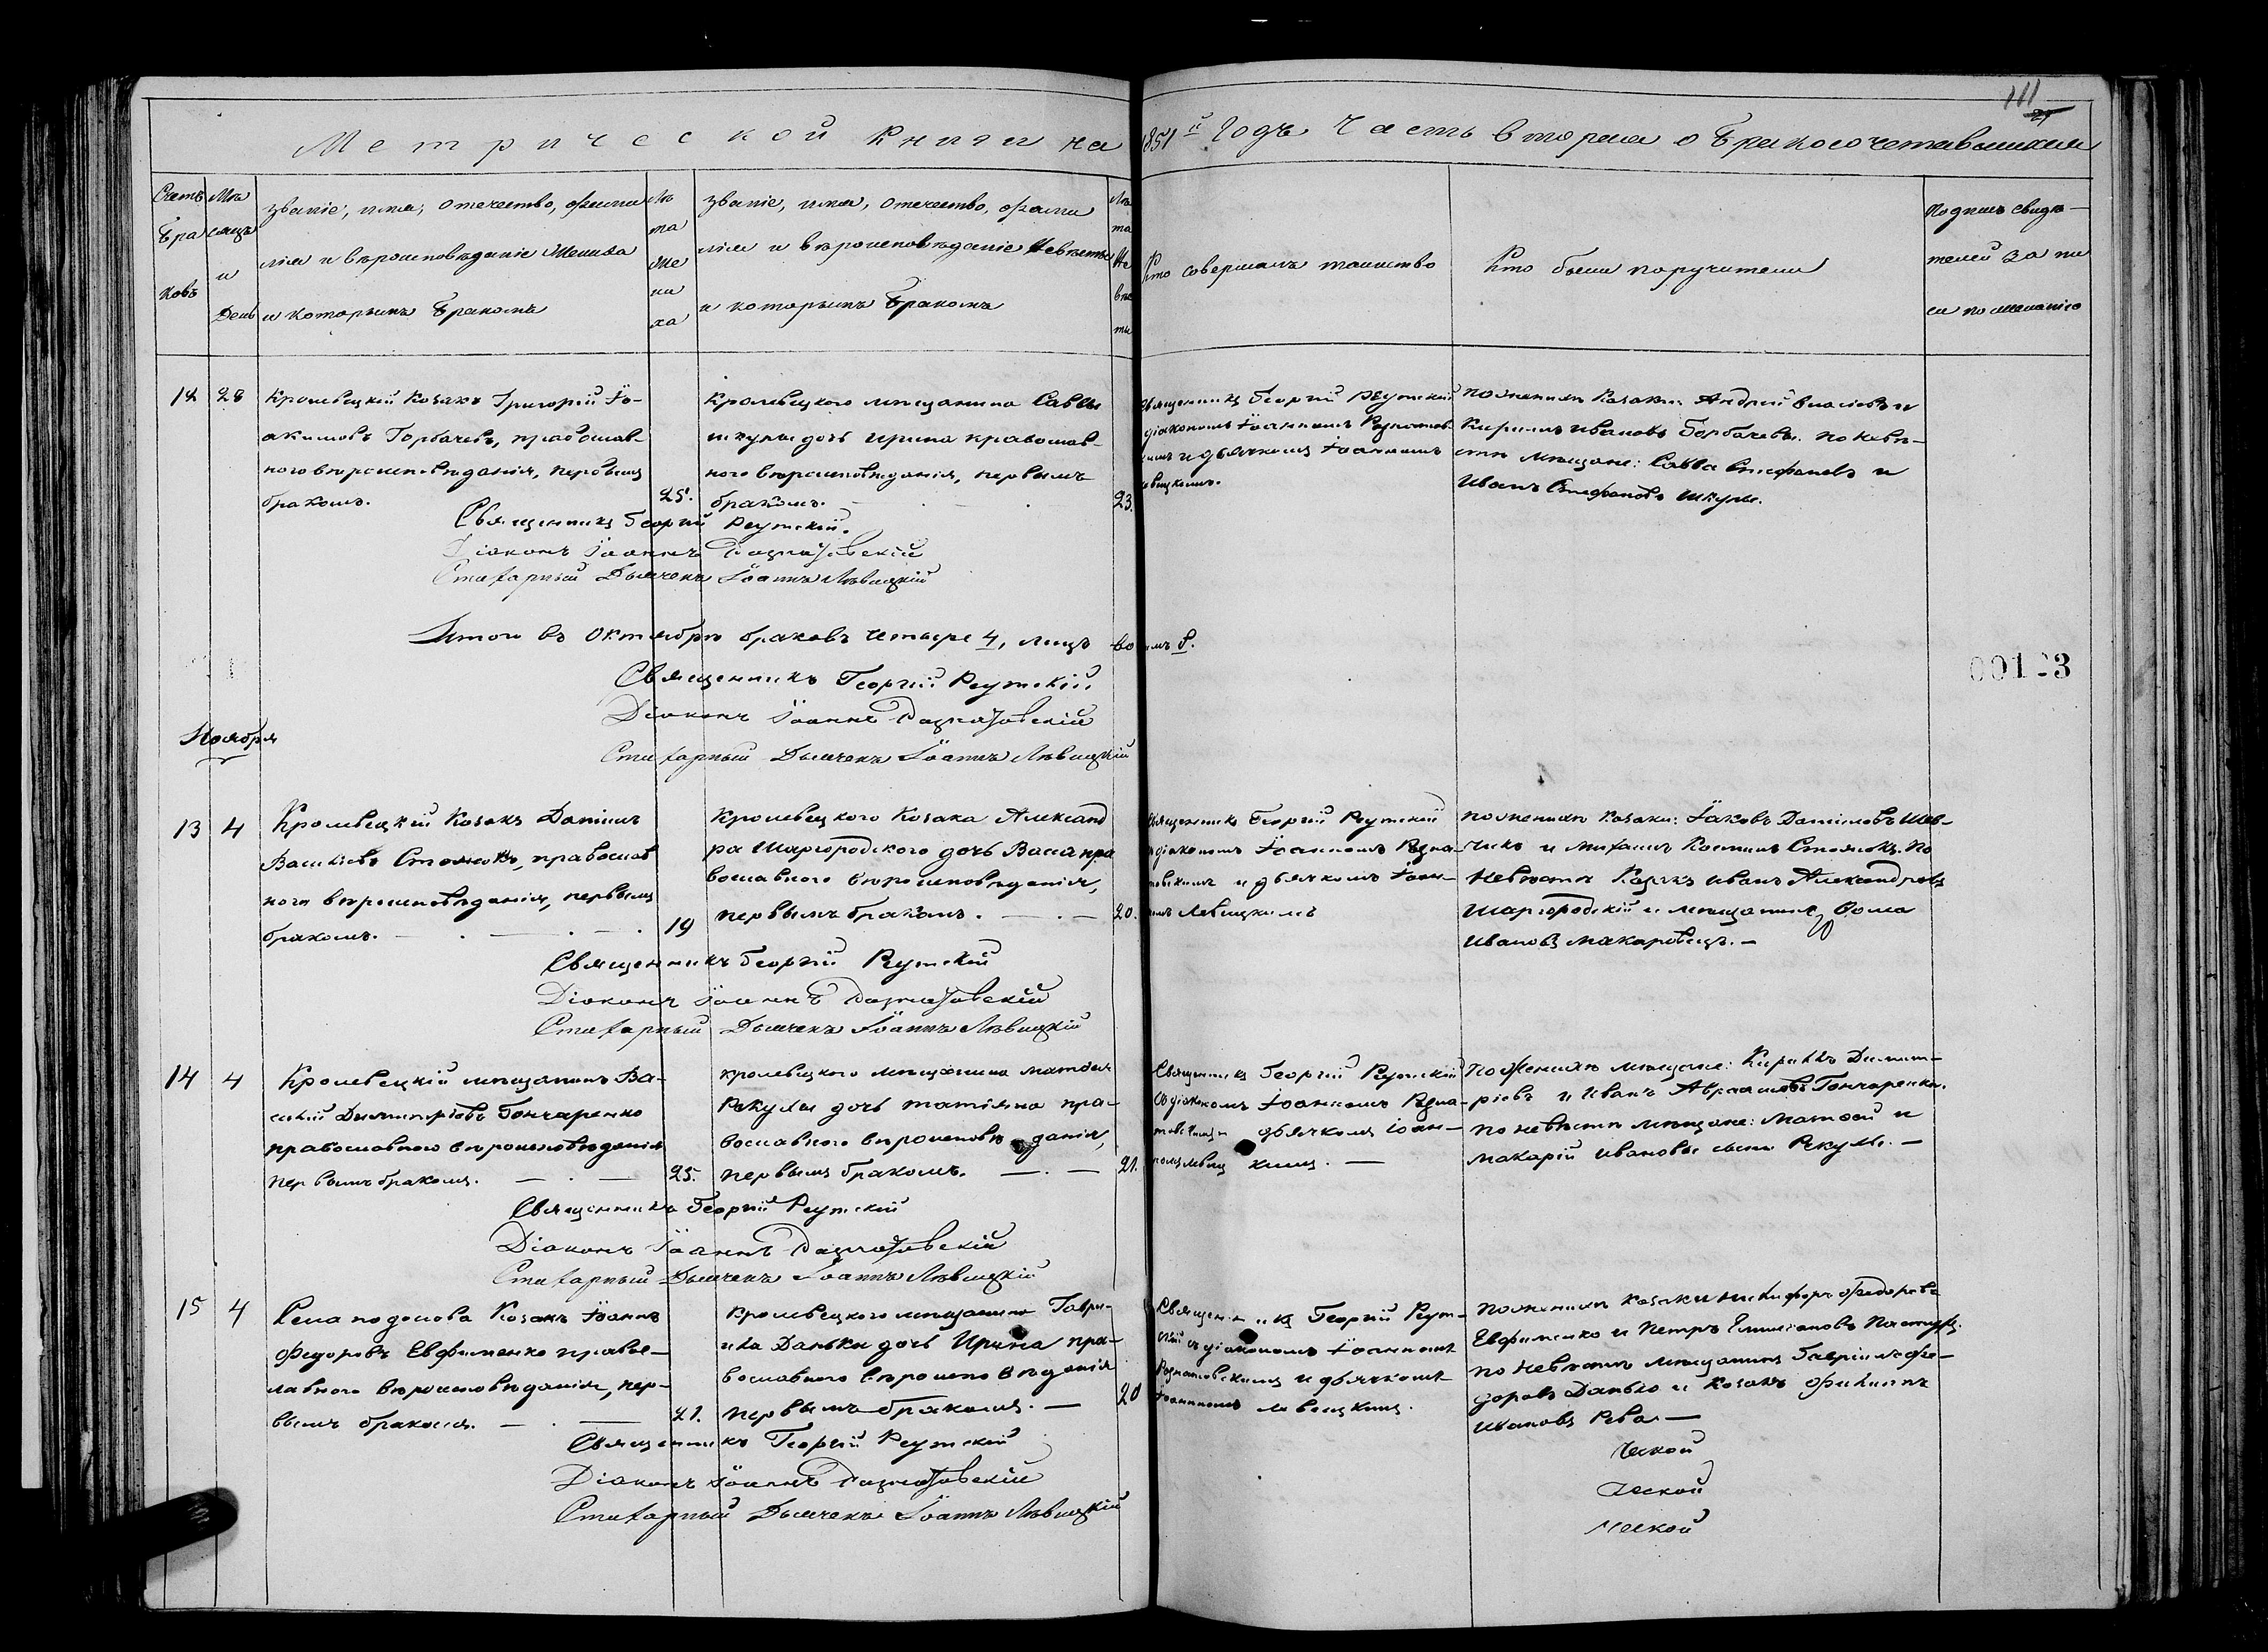 111
Метрической книги на 1851й Годъ Часть вторая о Бракосочетавшихся
Счетъ браковъ
Мѣсяцъ и День
Званіе, имя, отечество, фамилія и вѣроисповѣданіе Жениха и которымъ бракомъ
Лѣта Жениха
Званіе, имя, отечество, фамилія и вѣроисповѣданіе Невѣсты и которымъ бракомъ
Лѣта Невѣсты
Кто совершалъ таинство
Кто были поручители
Подпись свидѣтелей записи по желанію
12 28
Кролевецкій Козакъ Григорій Іо-
акимовъ Горбачевъ, православ-
ного вѣроисповѣданія, первымъ
бракомъ.
25.
Кролевецкого мещанина Саввы
Шкулы дочь Ирина православ-
ного вѣроисповѣданія, первымъ
бракомъ.
23.
Священникъ Георгій Реутскій
діакономъ Іоанномъ Рознатов-
имъ и дьячкомъ Іоанномъ
евицкимъ.
По женихѣ Козаки: Андрей Власіевъ и
Кирилъ Ивановъ Горбачевы. По невѣ-
стѣ мещане: Савва Стефановъ и
Иванъ Стефановъ Шкулы.
Священникъ Георгій Реутскій.
Діаконъ Іоаннъ Рознатовскій
Стихарный Дьячекъ Іоаннъ Лѣвицкій
Итого въ Октябрѣ браковъ четыре 4, лицъ во
Священникъ Георгій Реутскій
Діаконъ Іоаннъ Рознатовскій
Стихарный Дьячекъ Іоаннъ Лѣвицкій
00123
Ноября
13 4
Кролевецкій Козакъ Даніилъ
Васильевъ православ
ного вѣроисповѣданія, первымъ
бракомъ.
19
Кролевецкого Козака Александ
ра Шаргородского дочь Васа пра
вославного вѣроисповѣданія,
первымъ бракомъ.
20.
Священникъ Георгій Реутскій
діакономъ Іоанномъ Розна-
товскимъ и дьячкомъ Іоан-
омъ Левицкимъ
По женихѣ Козаки: Іаковъ Даниловъ Шев-
чикъ и Михаилъ По
невѣстѣ Козакъ Иванъ Александровъ
Шаргородскій и мещанинъ Фома
Ивановъ Макаровецъ.
Священникъ Георгій Реутскій
Діаконъ Іоаннъ Рознатовскій
Стихарный Дьячекъ Іоаннъ Лѣвицкій
14 4
Кролевецкій мещанинъ Ва-
силій Димитріевъ Гончаренко
православного вѣроисповѣданія
первымъ бракомъ.
25.
Кролевецкого мещанина Матѳея
Рекулы дочь Татіяна пра-
вославного вѣроисповѣданія,
первымъ бракомъ.
21.
Священникъ Георгій Реутскій
съ діакономъ Іоанномъ Розна-
товскимъ дьячкомъ Іоан-
номъ Левицкимъ.
По женихѣ мещане: Кириллъ Димит-
ріевъ и Иванъ Авраамовъ Гончаренки.
по невѣстѣ мещане: Матѳей и
Макарій Ивановы сыны Рекулы.
Священникъ Георгій Реутскій
Діаконъ Іоаннъ Рознатовскій
Стихарный Дьячекъ Іоаннъ Лѣвицкій
15 4
Села Подолова Козакъ Іоаннъ
Федоровъ Евфименко правос-
лавного вѣроисповѣданія, пер-
вымъ бракомъ.
21.
Кролевецкого мещанина Гаври-
ила Данька дочь Ирина пра-
вославного вѣроисповѣданія
первымъ бракомъ.
20
Священникъ Георгій Реут-
скій съ діакономъ Іоанномъ
Рознатовскимъ и дьячкомъ
Іоанномъ Левицкимъ.
По женихѣ Козаки Никифоръ Федоровъ
Евфименко и Петръ Емиліановъ
по невѣстѣ мещанинъ Гавріилъ Фе-
доровъ Данько и Козакъ Филиппъ
Ивановъ Рева.
Священникъ Георгій Реутскій
Діаконъ Іоаннъ Рознатовскій
Стихарный Дьячекъ Іоаннъ Лѣвицкій